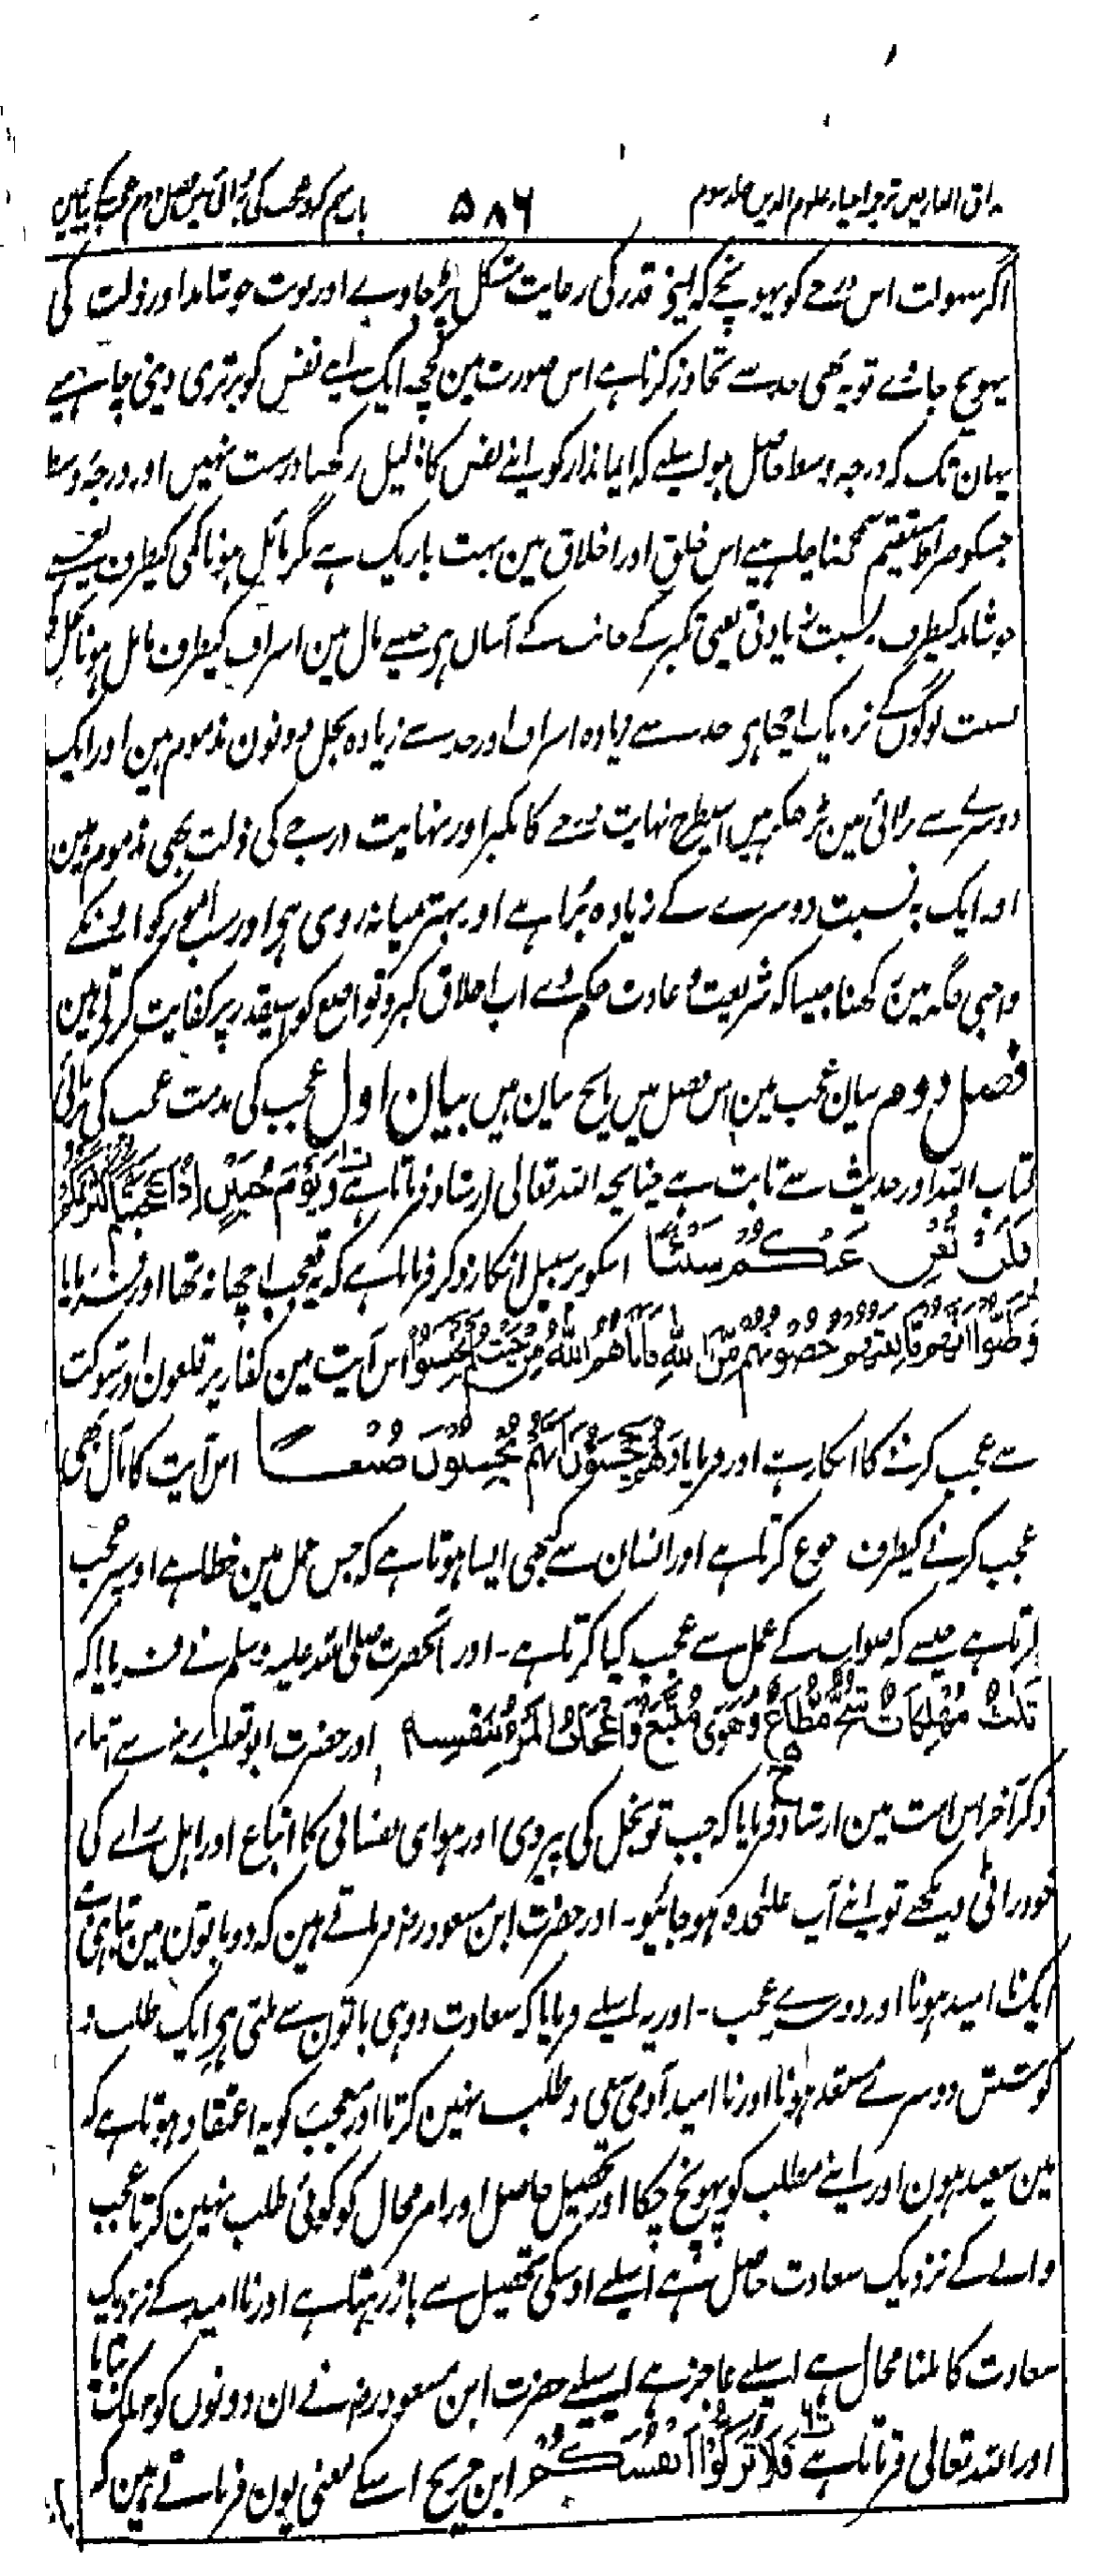 مذاق العارفین ترجمہ احیاء علوم الدین جلد سوم ۵۸۶ باب نہم کبر و عجب کی برائی میں فصل دوم عجب کے بیان میں
اگر سہولت اس درجے کو پہونچے کہ اپنی قدر کی رعایت مشکل پڑ جاوے اور نوبت خوشامد اور ذلت کی
پہونچ جاوے تو یہ بھی حد سے تجاوز کرنا ہے اس صورت مین کچھ ایک اپنے نفس کو برتری دینی چاہیے
یہان تک کہ درجہ وسط حاصل ہو اسلیے کہ ایماندار کو اپنے نفس کا ذلیل رکھنا درست نہیں اور درجہ وسط
جسکو صراط مستقیم سمجھنا چاہیے اس خلق اور اخلاق مین بہت باریک ہے مگر مائل ہونا کمی کیطرف یعنے
خوشامد کیطرف بہ نسبت زیادتی یعنی تکبر کے جانب کے آسان ہی جیسے مال مین اسراف کیطرف مائل ہونا بخل کی
نسبت لوگوں کے نزدیک اچھا ہی حد سے زیادہ اسراف اور حد سے زیادہ بخل دونون مذموم ہین اور ایک
دوسرے سے برائی مین بڑھکر ہیں اسیطرح نہایت درجے کا تکبر اور نہایت درجے کی ذلت بھی مذموم ہین
اور ایک بہ نسبت دوسرے کے زیادہ بُرا ہے اور بہتر میانہ روی ہی اور سب امور کو اونکے
واجبی جگہ مین رکھنا جیسا کہ شریعت و عادت حکم دے اب اخلاق کبر و تواضع کو اسیقدر پر کفایت کرتے ہین
فصل دوم بیان عجب مین اس فصل میں پانچ بیان ہیں بیان اول عجب کی مذمت عجب کی برائی
کتاب اللہ اور حدیث سے ثابت ہے چنانچہ اللہ تعالی ارشاد فرماتا ہے وَيَوْمَ حُنَيْنٍ اِذْ اَعْجَبَتْكُمْ كَثْرَتُكُمْ
فَلَمْ تُغْنِ عَنْكُمْ شَيْئًا اسکو بر سبیل انکار ذکر فرمایا ہے کہ یہ تعجب اچھا نہ تھا اور فرمایا
وَظَنُّوْا اَنَّهُمْ مَّانِعَتُهُمْ حُصُوْنُهُمْ مِّنَ اللّٰهِ فَاَتَاهُمُ اللّٰهُ مِنْ حَيْثُ لَمْ يَحْتَسِبُوْا اس آیت مین کفار پر قلعون اور شوکت
سے عجب کرنے کا انکار ہے اور فرمایا وَهُمْ يَحْسَبُوْنَ اَنَّهُمْ يُحْسِنُوْنَ صُنْعًا اس آیت کا مآل بھی
عجب کرنے کیطرف رجوع کرتا ہے اور انسان سے کبھی ایسا ہوتا ہے کہ جس عمل مین خطا ہے اوسپر عجب
کرتا ہے جیسے کہ صواب کے عمل سے عجب کیا کرتا ہے۔ اور آنحضرت صلی اللہ علیہ وسلم نے فرمایا کہ
ثَلٰثٌ مُهْلِكَاتٌ شُحٌّ مُّطَاعٌ وَهَوًى مُتَّبَعٌ وَاِعْجَابُ الْمَرْءِ بِنَفْسِهٖ اور حضرت ابو ثعلبہ رض سے
ذکر آخر اس امت مین ارشاد فرمایا کہ جب تو بخل کی پیروی اور ہوای نفسانی کا اتباع اور اہل رائے کی
خودرائی دیکھے تو اپنے آپ علٰحدہ ہو جائیو۔ اور حضرت ابن مسعود رض فرماتے ہین کہ دو باتون مین تباہی ہے
ایک نا امید ہونا اور دوسرے عجب۔ اور یہ اسلیے فرمایا کہ سعادت دو ہی باتون سے ملتی ہی ایک طلب و
کوشش دوسرے مستعد ہونا اور نا امید آدمی سعی و طلب نہین کرتا اور معجب کو یہ اعتقاد ہوتا ہے کہ
مین سعید ہون اور اپنے مطلب کو پہونچ چکا اور تحصیل حاصل اور امر محال کو کوئی طلب نہین کرتا عجب
والے کے نزدیک سعادت حاصل ہے اسلیے اوسکی تحصیل سے باز رہتا ہے اور نا امید کے نزدیک
سعادت کا ملنا محال ہے اسلیے عاجز ہے اسیلیے حضرت ابن مسعود رض نے ان دونوں کو مہلک بتایا
اور اللہ تعالی فرماتا ہے فَلَا تُزَكُّوْا اَنْفُسَكُمْ ابن جریج اسکے معنی یون فرماتے ہین کہ